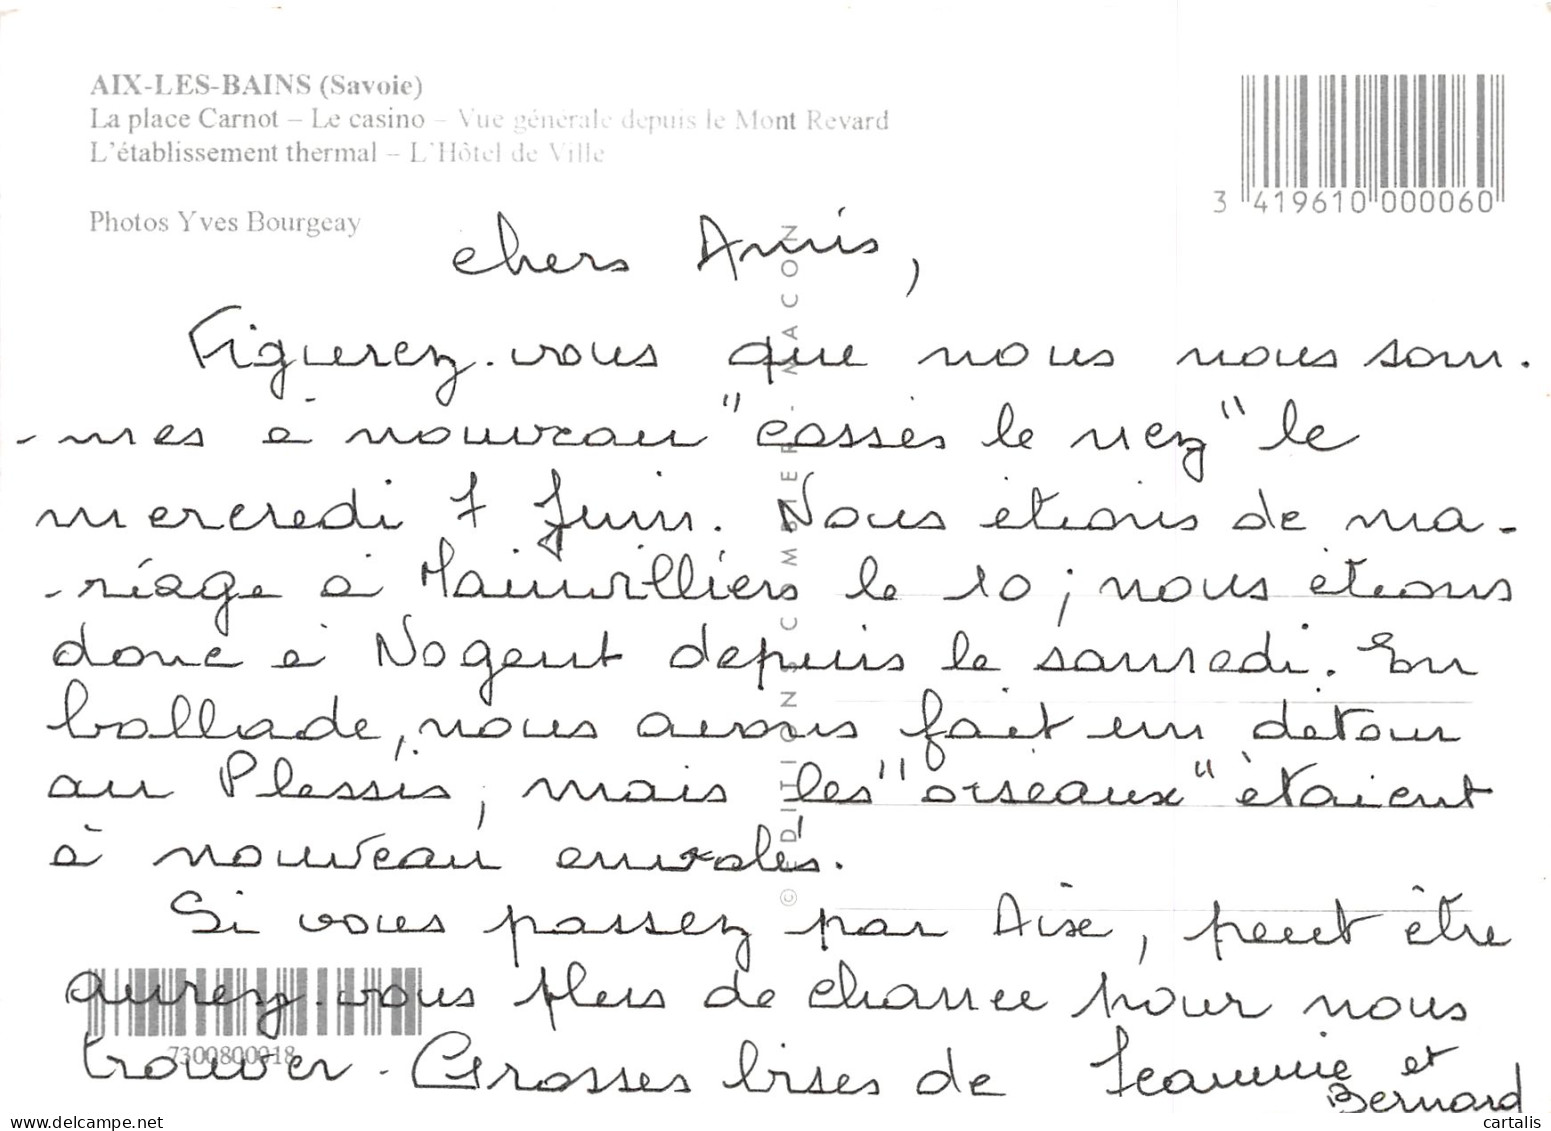 AIX-LES-BAINS (Savoie)
La place Carnot – Le casino – Vue générale depuis le Mont Revard
L'établissement thermal – L'Hôtel de Ville
Photos Yves Bourgeay
3 419610 000060
© EDITIONS COMBIER - MACON
chers Amis,
Figurez-vous que nous nous som-
-mes à nouveau "cassés le nez" le
mercredi 7 Juin. Nous étions de ma-
-riage à Mainvilliers le 10; nous étions
donc à Nogent depuis le samedi. En
ballade, nous avons fait un détour
au Plessis, mais les "oiseaux" étaient
à nouveau envolés.
Si vous passez par Aix, peut être
aurez-vous plus de chance pour nous
trouver. Grosses bises de Jeannie et
Bernard
7300800018
delcampe.net
cartalis